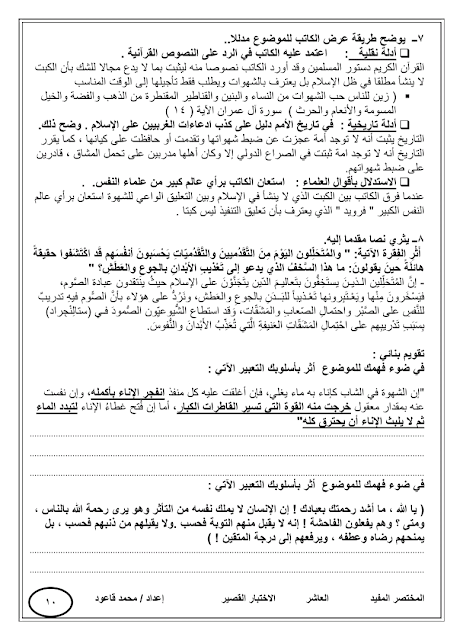 ٧ــ يوضح طريقة عرض الكاتب للموضوع مدللا..
❑ أدلة نقلية : اعتمد عليه الكاتب في الرد على النصوص القرآنية .
القرآن الكريم دستور المسلمين وقد أورد الكاتب نصوصا منه ليثبت بما لا يدع مجالا للشك بأن الكبت
لا ينشأ مطلقا في ظل الإسلام بل يعترف بالشهوات ويطلب فقط تأجيلها إلى الوقت المناسب
▪ ( زين للناس حب الشهوات من النساء والبنين والقناطير المقنطرة من الذهب والفضة والخيل
المسومة والأنعام والحرث ) سورة آل عمران الآية ( ١٤ )
❑ أدلة تاريخية : في تاريخ الأمم دليل على كذب ادعاءات الغربيين على الإسلام . وضح ذلك.
التاريخ يثبت أنه لا توجد أمة عجزت عن ضبط شهواتها وتقدمت أو حافظت على كيانها ، كما يقرر
التاريخ أنه لا توجد امة ثبتت في الصراع الدولي إلا وكان أهلها مدربين على تحمل المشاق ، قادرين
على ضبط شهواتهم.
❑ الاستدلال بأقوال العلماء : استعان الكاتب برأي عالم كبير من علماء النفس. .
عندما فرق الكاتب بين الكبت الذي لا ينشأ في الإسلام وبين التعليق الواعي للشهوة استعان برأي عالم
النفس الكبير " فرويد " الذي يعترف بأن تعليق التنفيذ ليس كبتا .
٨ــ يثري نصا مقدما إليه.
أثرِ الفقرة الآتية: " والمُتَحلِّلون اليَوْمَ مِنَ التَّقدُّميينَ والتَّقدُّميّاتِ يَحْسَبونَ أنفُسَهم قَد اكْتَشَفُوا حقيقةً
هائلةً حين يقولونَ: ما هذا السُّخفُ الّذي يدعو إلى تعْذيبِ الأبْدانِ بالجوعِ والعَطَشِ؟ "
- إنَّ المُتحلِّلين الـذيـنَ يستَخِفُّونَ بِتَعاليـمِ الـدِّينِ يَتجَنَّوْنَ على الإسلامِ حيثُ يَنتقدونَ عبادةَ الصَّوم،
فيَسْخَرونَ مِنْها ويَعْتبرونها تَعْـذيباً لِلبَـدنِ بالجوعِ والعَطشِ، ونَرُدُّ على هؤلاء بأنَّ الصَّومَ فيهِ تدريبٌ
للنَّفسِ على الصَّبْرِ واحتمالِ الصِّعابِ والمَشَقَّاتِ، وَقد استطاعَ الشُّيوعيّون الصُّمودَ فـي (ستالِنْجراد)
بِسَبَبِ تَدْريبِهم على احْتِمالِ المَشَقَّاتِ العَنيفةِ الَّتي تُعَذِّبُ الأبْدانَ والنُّفوسَ.
تقويم بنائي :
في ضوء فهمك للموضوع أثر بأسلوبك التعبير الآتي :
"إن الشهوة في الشاب كإناء به ماء يغلي، فإن أغلقت عليه كل منفذ انفجر الإناء بأكمله، وإن نفست
عنه بمقدار معقول خرجت منه القوة التي تسير القاطرات الكبار، أما إن فُتح غطاءُ الإناء لتبدد الماء
ثم لا يلبث الإناء أن يحترق كله"
في ضوء فهمك للموضوع أثر بأسلوبك التعبير الآتي :
( يا الله ، ما أشد رحمتك بعبادك ! إن الإنسان لا يملك نفسه من التأثر وهو يرى رحمة الله بالناس ،
ومتى ؟ وهم يفعلون الفاحشة ! إنه لا يقبل منهم التوبة فحسب .ولا يقيلهم من ذنبهم فحسب ، بل
يمنحهم رضاه وعطفه ، ويرفعهم إلى درجة المتقين ! )
المختصر المفيد العاشر الاختبار القصير إعداد / محمد قاعود ١٠